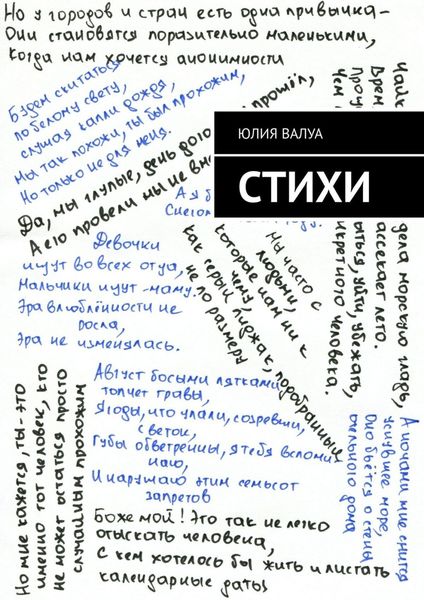 Но у городов и стран есть одна привычка –
Они становятся поразительно маленькими,
Когда нам хочется анонимности
Будем скитаться
по белому свету,
слушая капли дождя,
Мы так похожи, ты был прохожим,
Но только не для меня.
ЮЛИЯ ВАЛУА
СТИХИ
Да, мы глупые, день
прошёл,
А его провели мы не
Девочки
ищут во всех отца,
Мальчики ищут - маму.
Эра влюблённости не
росла,
Эра не изменялась.
Мы часто с
людьми,
которые нам ни к
чему,
как серый пиджак, подобранный
не по размеру
дела морскую гладь,
ассекает лето.
ыться, уйти, убежать,
кретного человека.
Август босыми пятками
топчет травы,
Ягоды, что упали, созревши,
с веток,
Губы обветренны, я тебя вспомин
наю,
И нарушаю этим семьсот
запретов
Но мне кажется, ты - это
именно тот человек, кто
не может остаться просто
случайным прохожим
А ночами мне снится
уснувшее море,
Оно бьётся о стены
дома
Боже мой! Это так не легко
отыскать человека,
С кем хотелось бы жить и листать
календарные даты